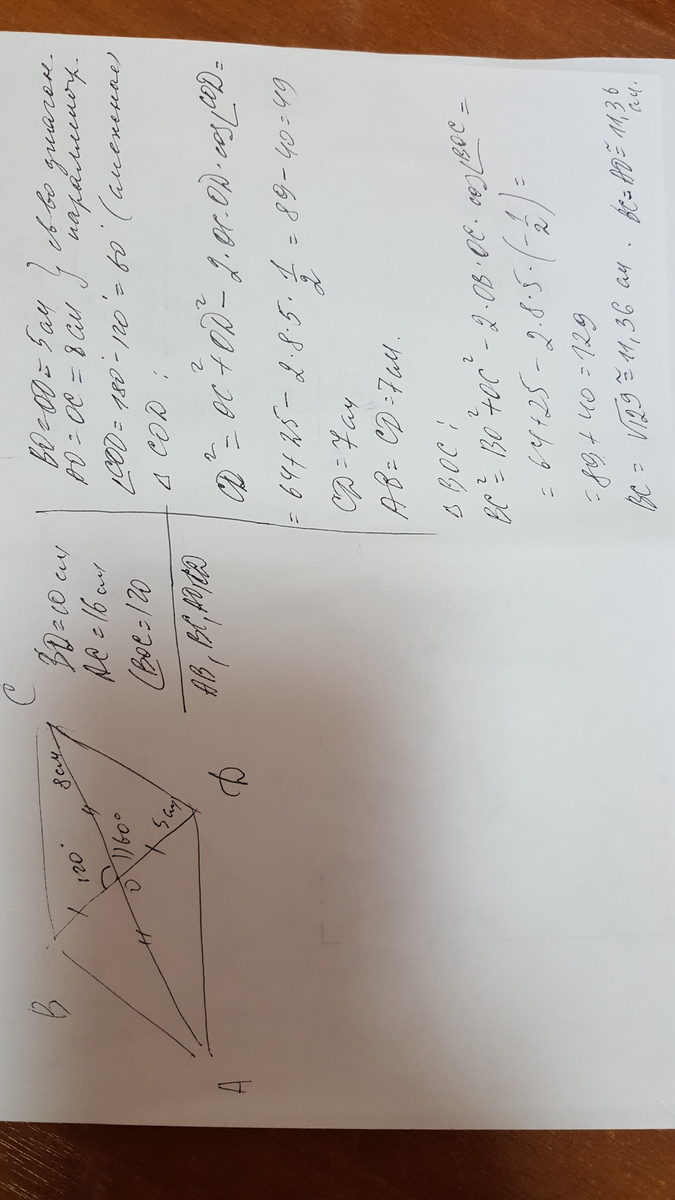 B
C
120°
8см
O
60°
5см
A
D
BD=10 см
AC=16 см
∠BOC=120
AB, BC, AD, CD
BO=OD=5см } св-во диагон.
AO=OC=8см } параллелогр.
∠COD=180°-120°=60° (смежные
△COD:
CD²=OC²+OD²-2·OC·OD·cos∠COD=
=64+25-2·8·5·1/2=89-40=49
CD=7см
AB=CD=7см.
△BOC:
BC²=BO²+OC²-2·OB·OC·cos∠BOC=
=64+25-2·8·5·(-1/2)=
=89+40=129
BC=√129≈11,36 см. BC=AD≈11,36
см.